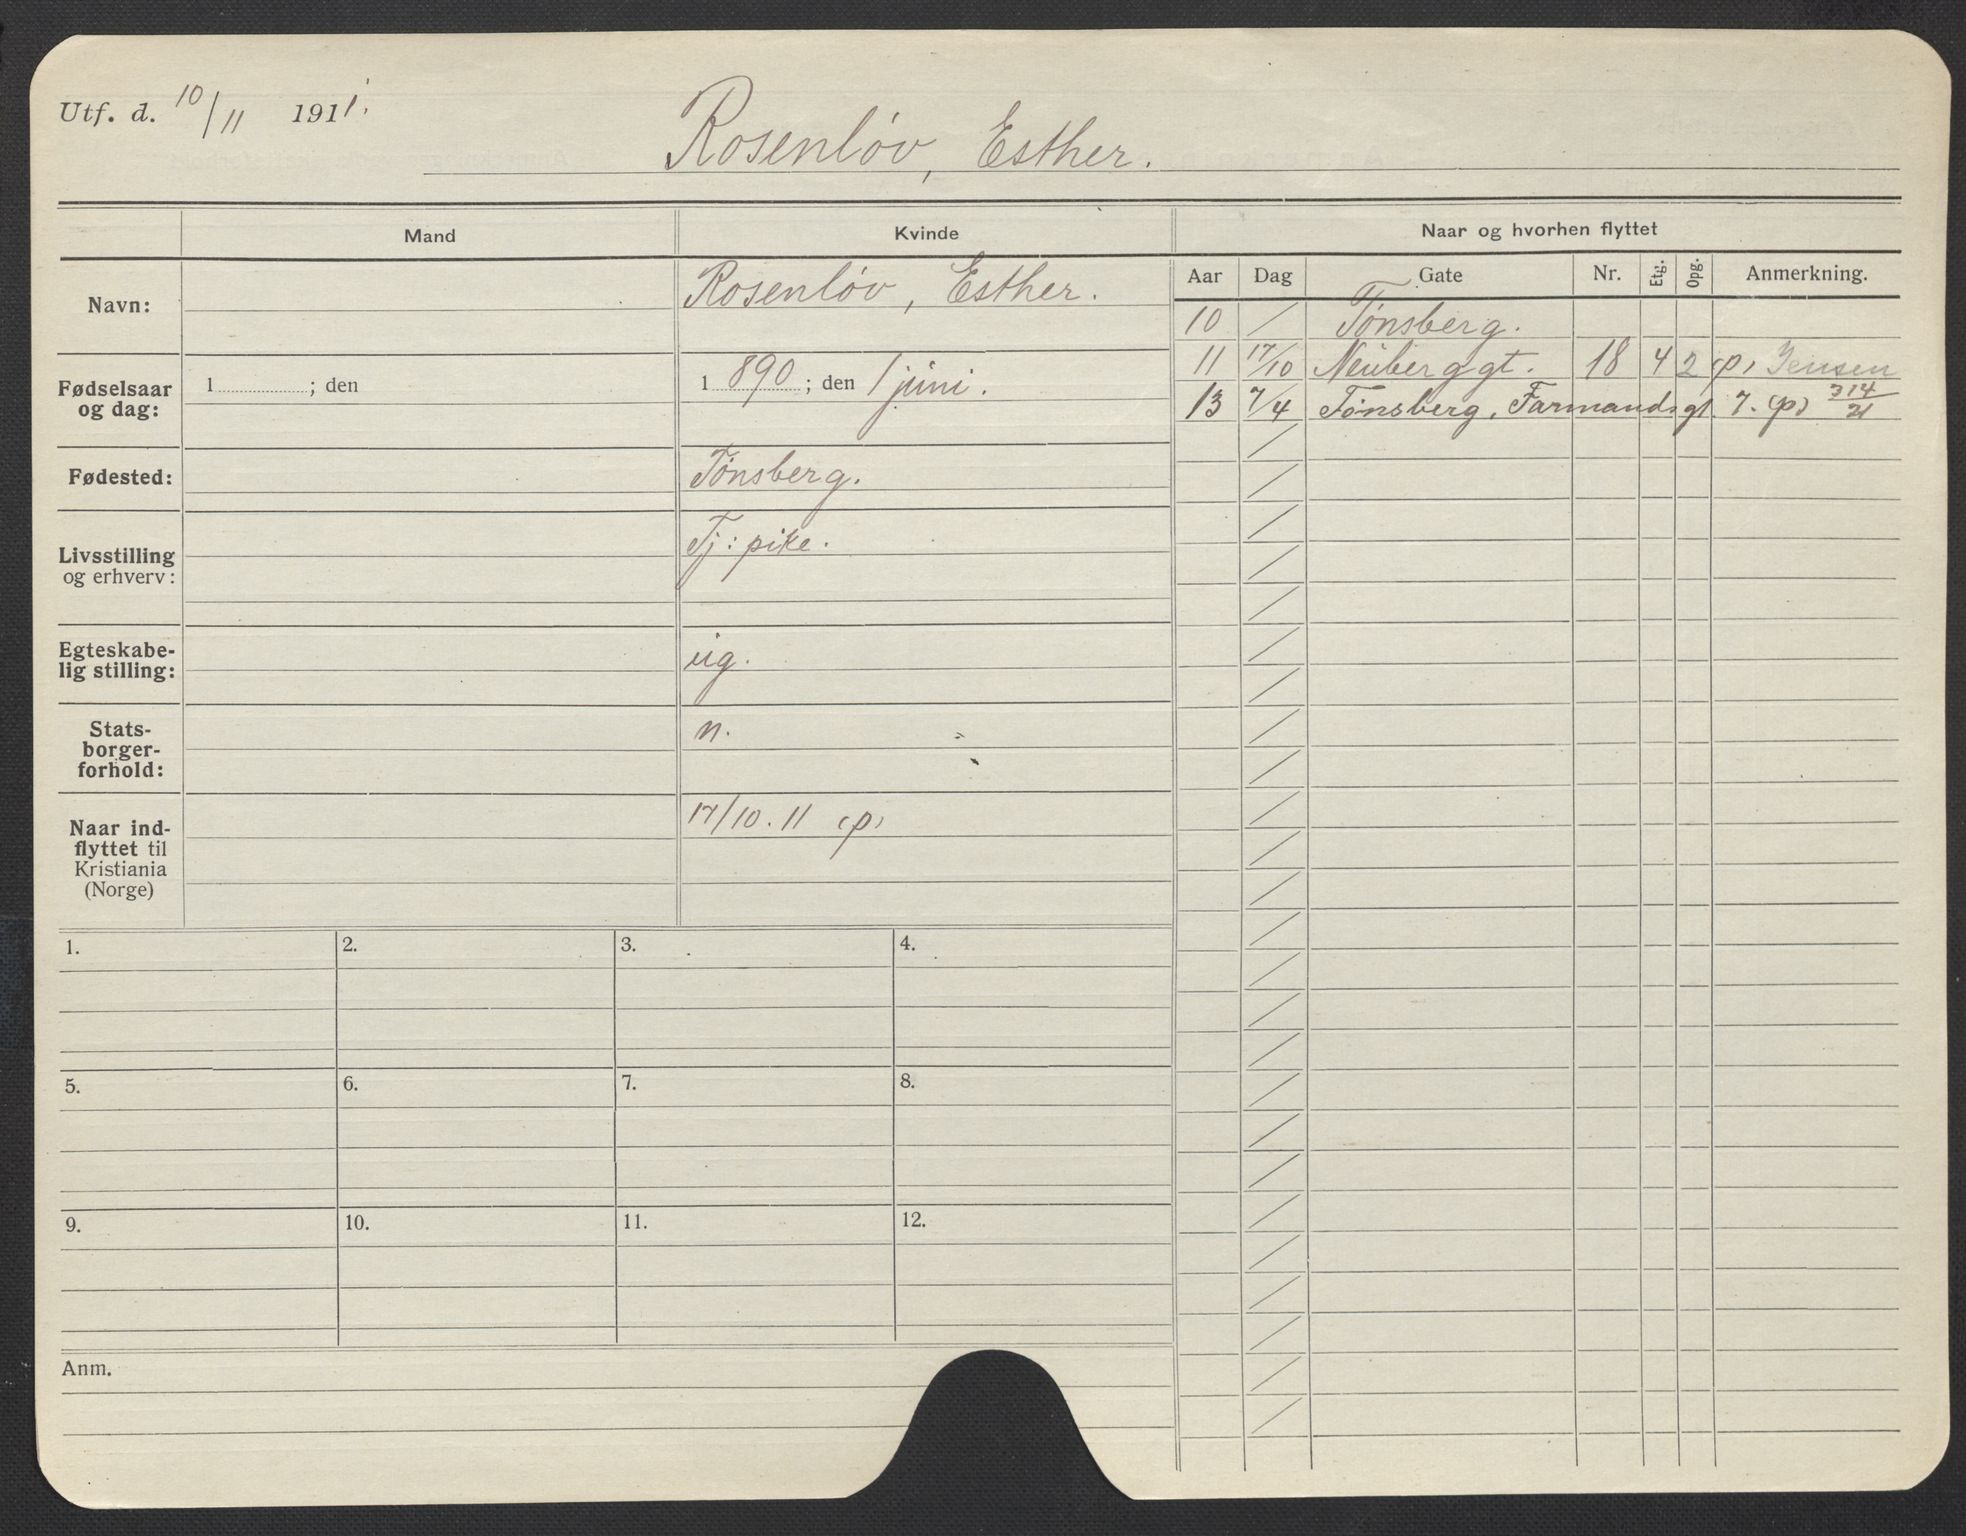 Utf. d. 10/11 1911.
Rosenløv, Esther.
Mand
Kvinde
Naar og hvorhen flyttet
Navn:
Rosenløv, Esther.
Fødselsaar
og dag:
1 ; den
1 890 ; den 1 juni.
Fødested:
Tønsberg.
Livsstilling
og erhverv:
Tj: pike.
Egteskabe-
lig stilling:
ug.
Stats-
borger-
forhold:
n.
Naar ind-
flyttet til
Kristiania
(Norge)
17/10. 11 (p)
Aar Dag Gate Nr. Etg: Opg. Anmerkning.
10 / Tønsberg.
11 17/10 Neuberggt. 18 4 2 (p) Jensen
13 7/4 Tønsberg, Farmandsgt 7. (p) 314/21
1. 2. 3. 4.
5. 6. 7. 8.
9. 10. 11. 12.
Anm.